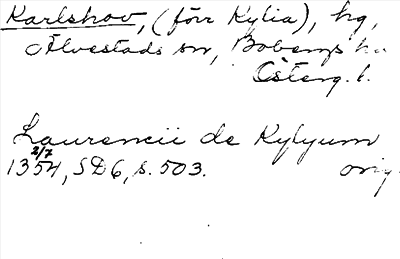 Karlshov, (förr Kylia), hg,
Alvestads sn, Bobergs h.
Österg. l.
Laurencii de Kylyum
2/7
1354, SD6, s. 503. orig.